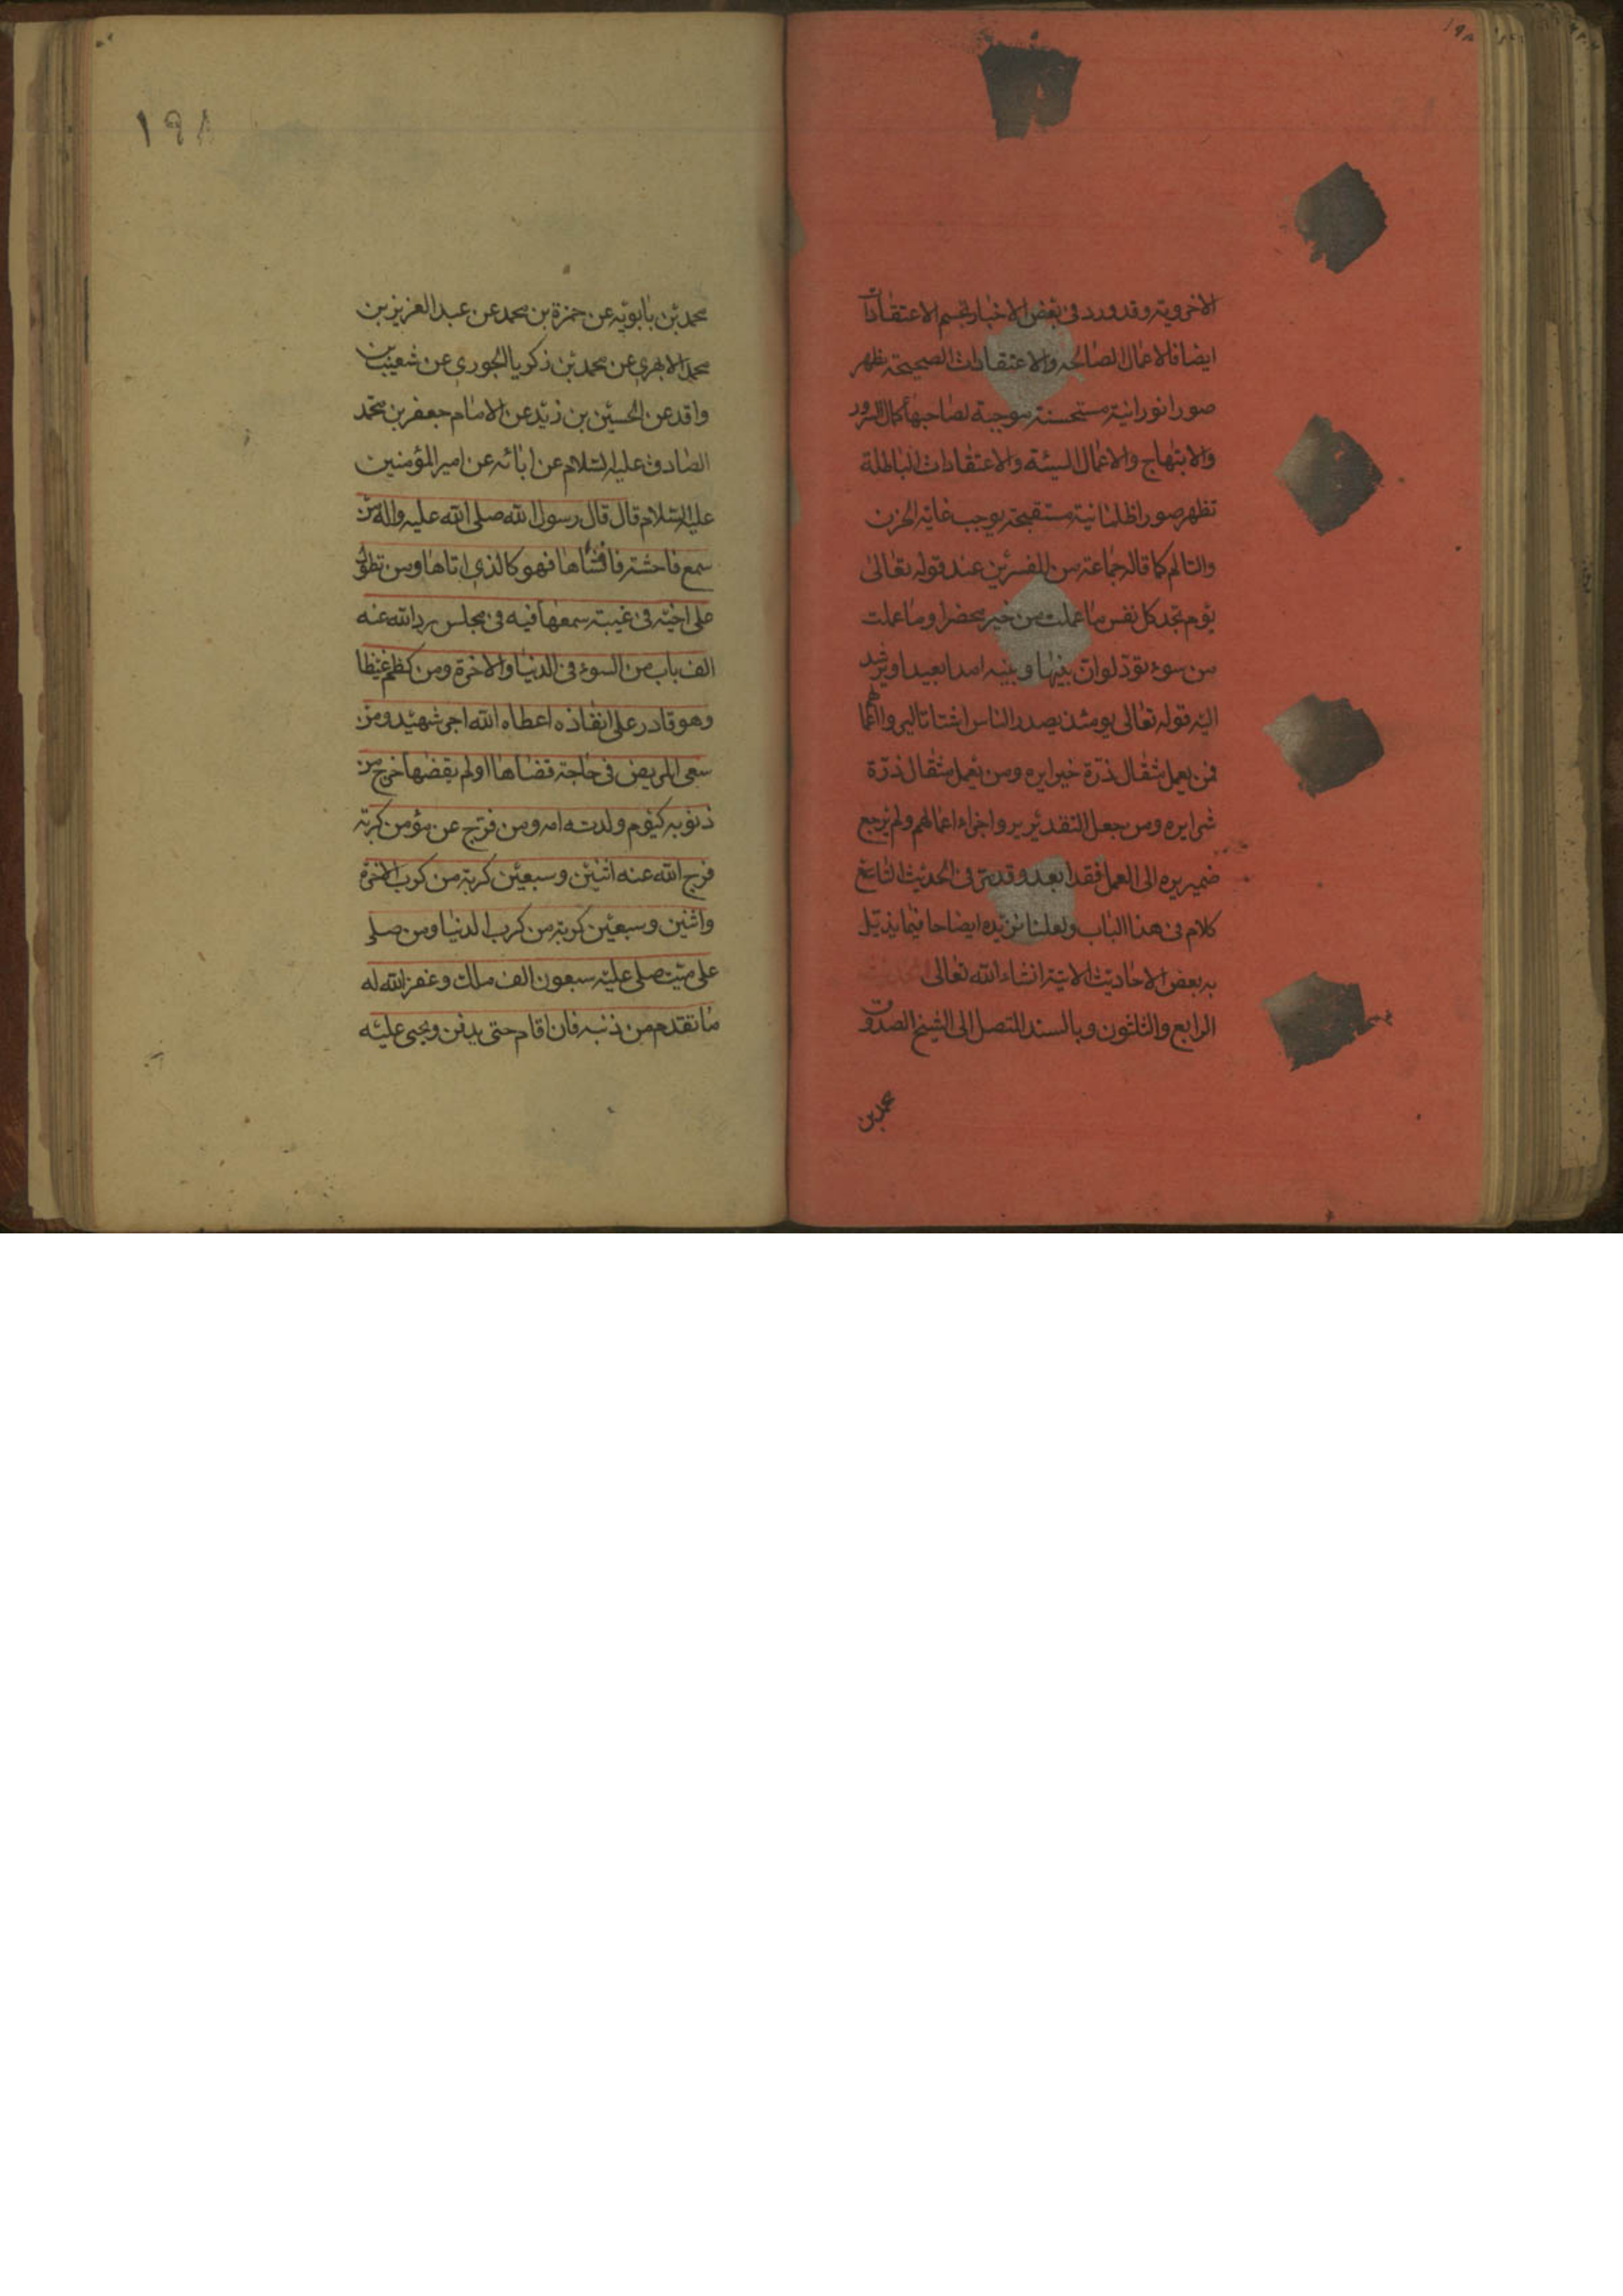 الاخروية وقد ورد فی بعض الاخبار تجسم الاعتقادات
ایضا فالاعمال الصالحه والاعتقادات الصحیحة یظهر
صورا نورانیة مستحسنة موجبة لصاحبها کمال السرور
والابتهاج والاعمال السیئة والاعتقادات الباطلة
تظهر صورا ظلمانیة مستقبحة یوجب غایة الحزن
والتالم کما قاله جماعة من المفسرین عند قوله تعالی
یوم تجد کل نفس ما عملت من خیر محضرا وما عملت
من سوء تود لو ان بینها وبینه امدا بعیدا ویرشد
الیه قوله تعالی یومئذ یصدر الناس اشتاتا لیروا اعمالهم
فمن یعمل مثقال ذرة خیرا یره ومن یعمل مثقال ذرة
شرا یره ومن جعل التقدیر یروا جزاء اعمالهم ولم یرجع
ضمیر یره الی العمل فقد ابعد وقد مر فی الحدیث التاسع
کلام فی هذا الباب ولعلنا نزیده ایضاحا فیما یذیل
به بعض الاحادیث الاتیة انشاء الله تعالی الحدیث
الرابع والثلثون وبالسند المتصل الی الشیخ الصدوق
محمد بن
۱۹۸
محمد بن بابویه عن حمزة بن محمد عن عبد العزیز بن
محمد الابهری عن محمد بن زکریا الجوری عن شعیب بن
واقد عن الحسین بن زید عن الامام جعفر بن محمد
الصادق علیه السلام عن ابائه عن امیر المؤمنین
علیه السلام قال قال رسول الله صلی الله علیه واله من
سمع فاحشة فافشاها فهو کالذی اتاها ومن تطول
علی اخیه فی غیبة سمعها فیه فی مجلس رد الله عنه
الف باب من السوء فی الدنیا والاخرة ومن کظم غیظا
وهو قادر علی انفاذه اعطاه الله اجر شهید ومن
سعی المریض فی حاجة قضاها او لم یقضها خرج من
ذنوبه کیوم ولدته امه ومن فرج عن مؤمن کربة
فرج الله عنه اثنین وسبعین کربة من کرب الاخرة
واثنین وسبعین کربة من کرب الدنیا ومن صلی
علی میت صلی علیه سبعون الف ملک وغفر الله له
ما تقدم من ذنبه فان اقام حتی یدفن ویحثی علیه